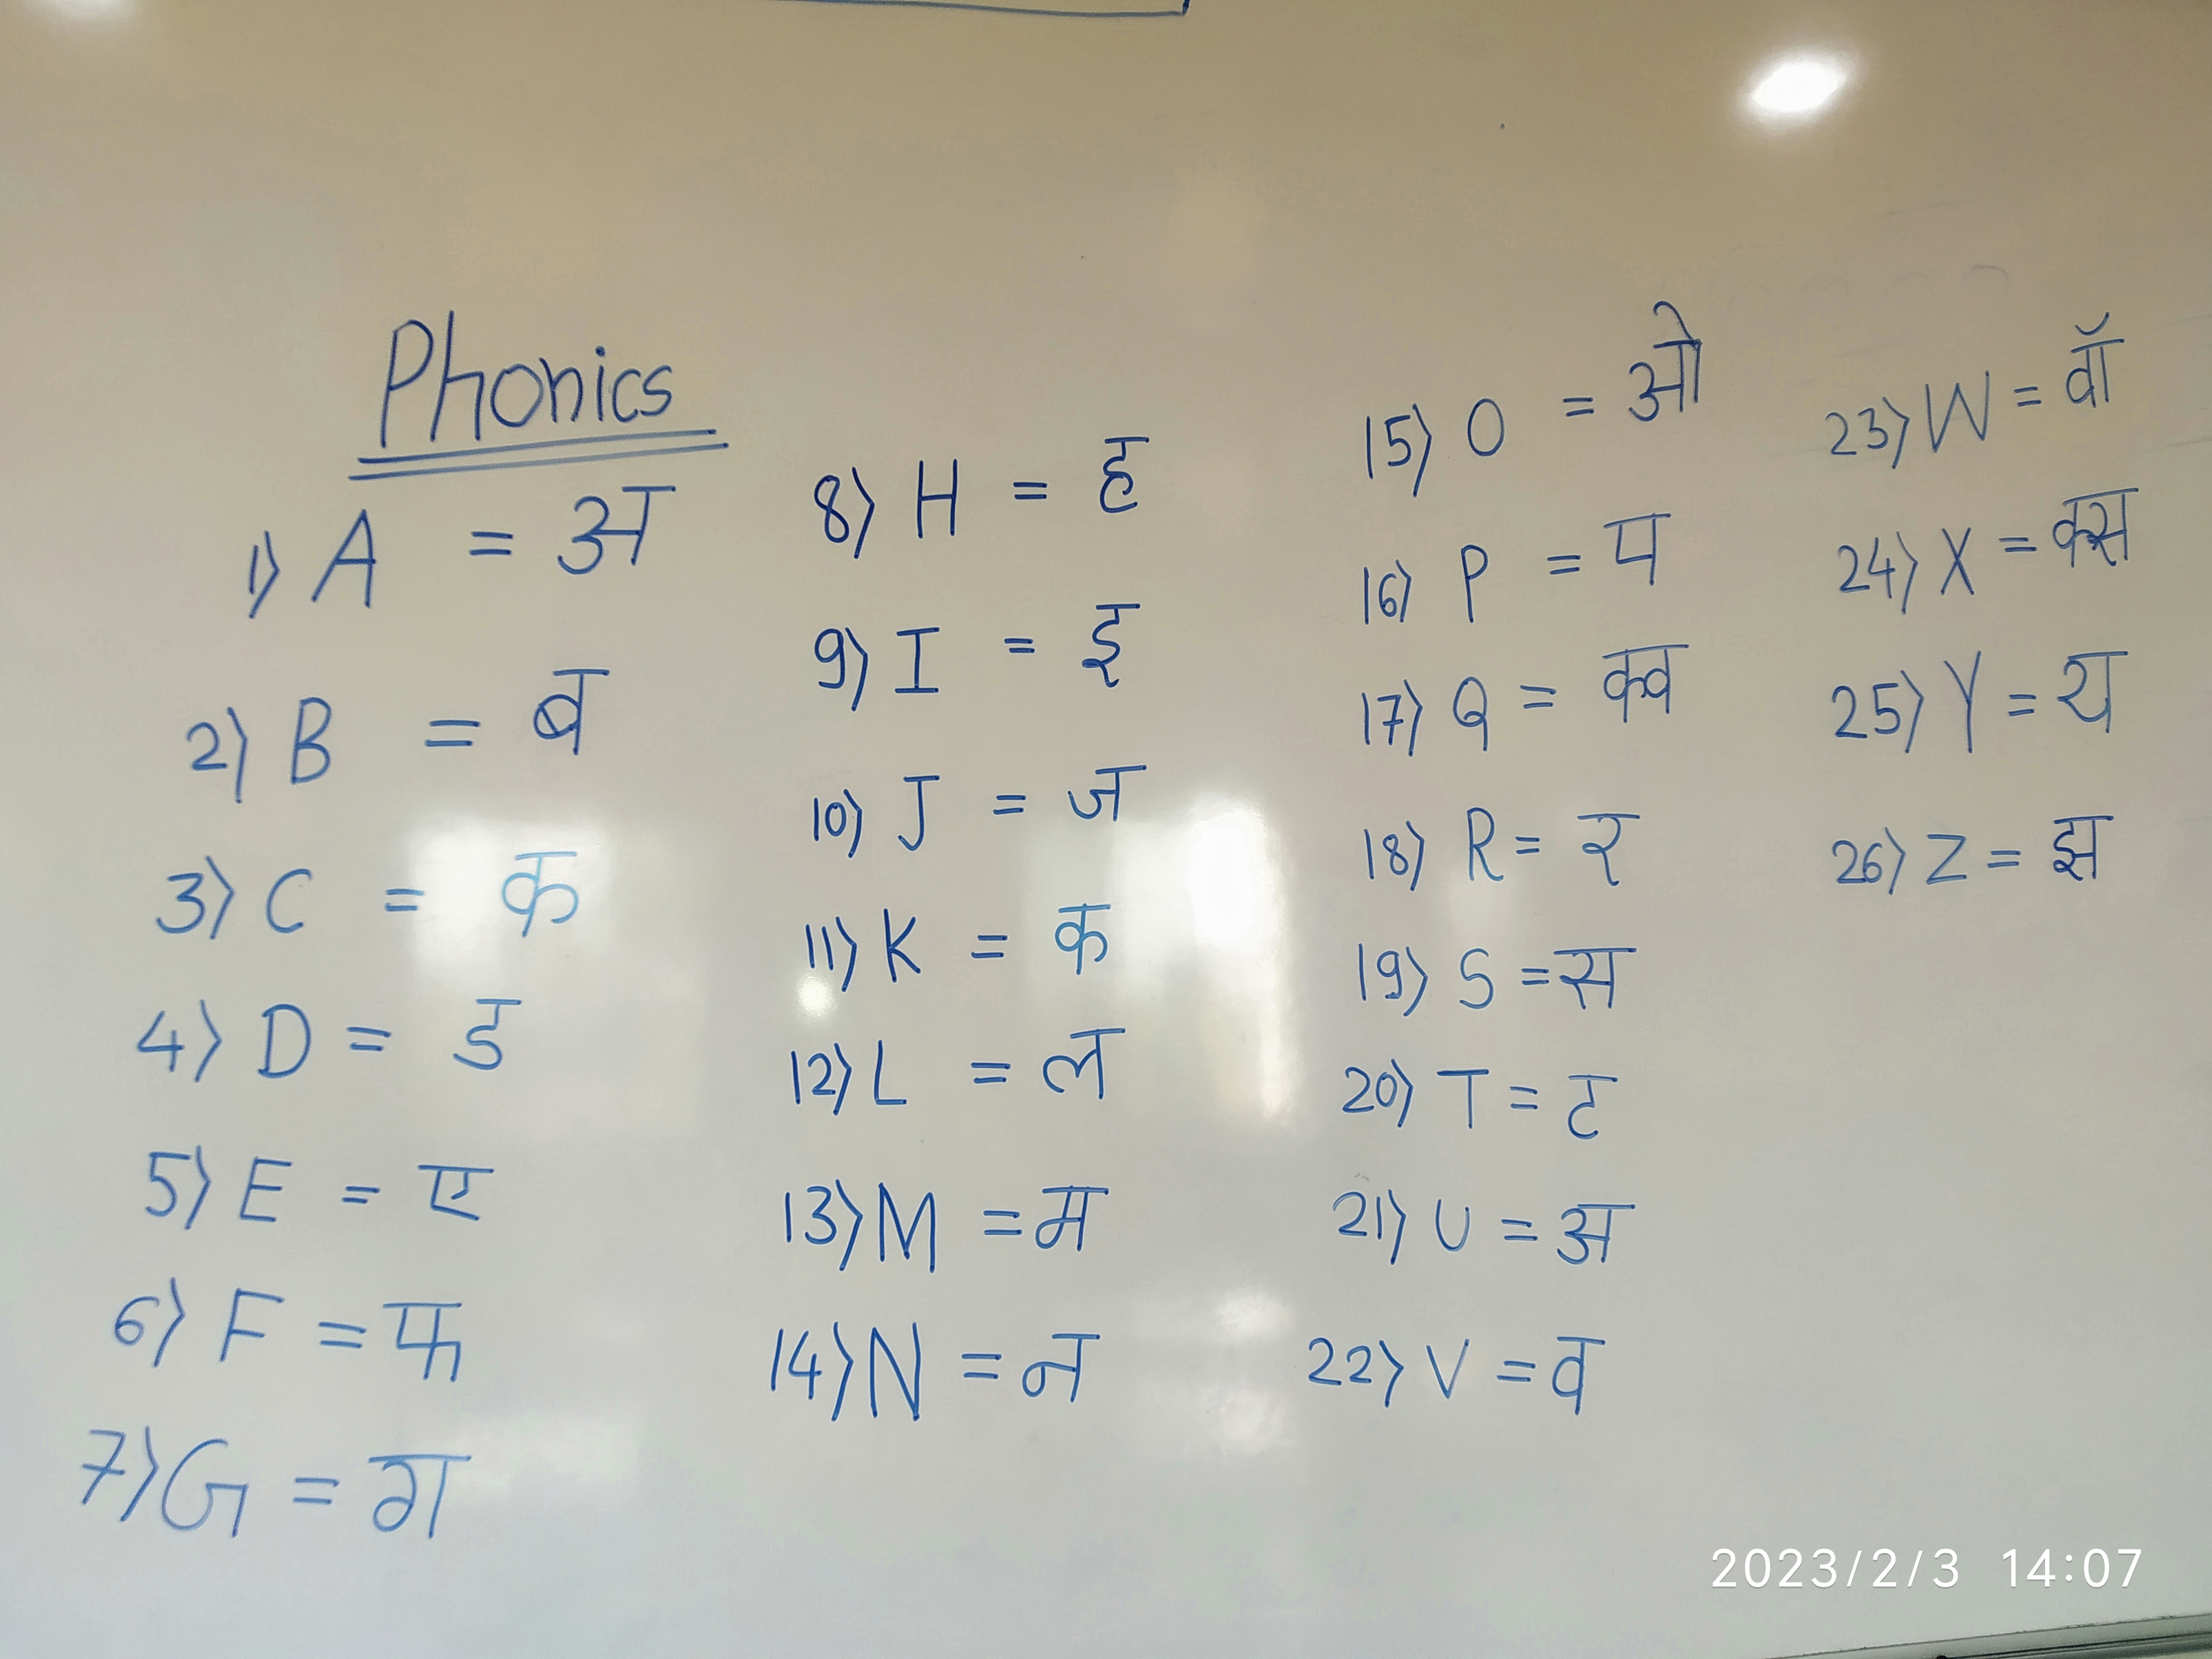 Phonics
1) A = अ
2) B = ब
3) C = क
4) D = ड
5) E = ए
6) F = फ
7) G = ग
8) H = ह
9) I = इ
10) J = ज
11) K = क
12) L = ल
13) M = म
14) N = न
15) O = ओ
16) P = प
17) Q = क्व
18) R = र
19) S = स
20) T = ट
21) U = अ
22) V = व
23) W = वॉ
24) X = क्स
25) Y = य
26) Z = झ
2023/2/3 14:07